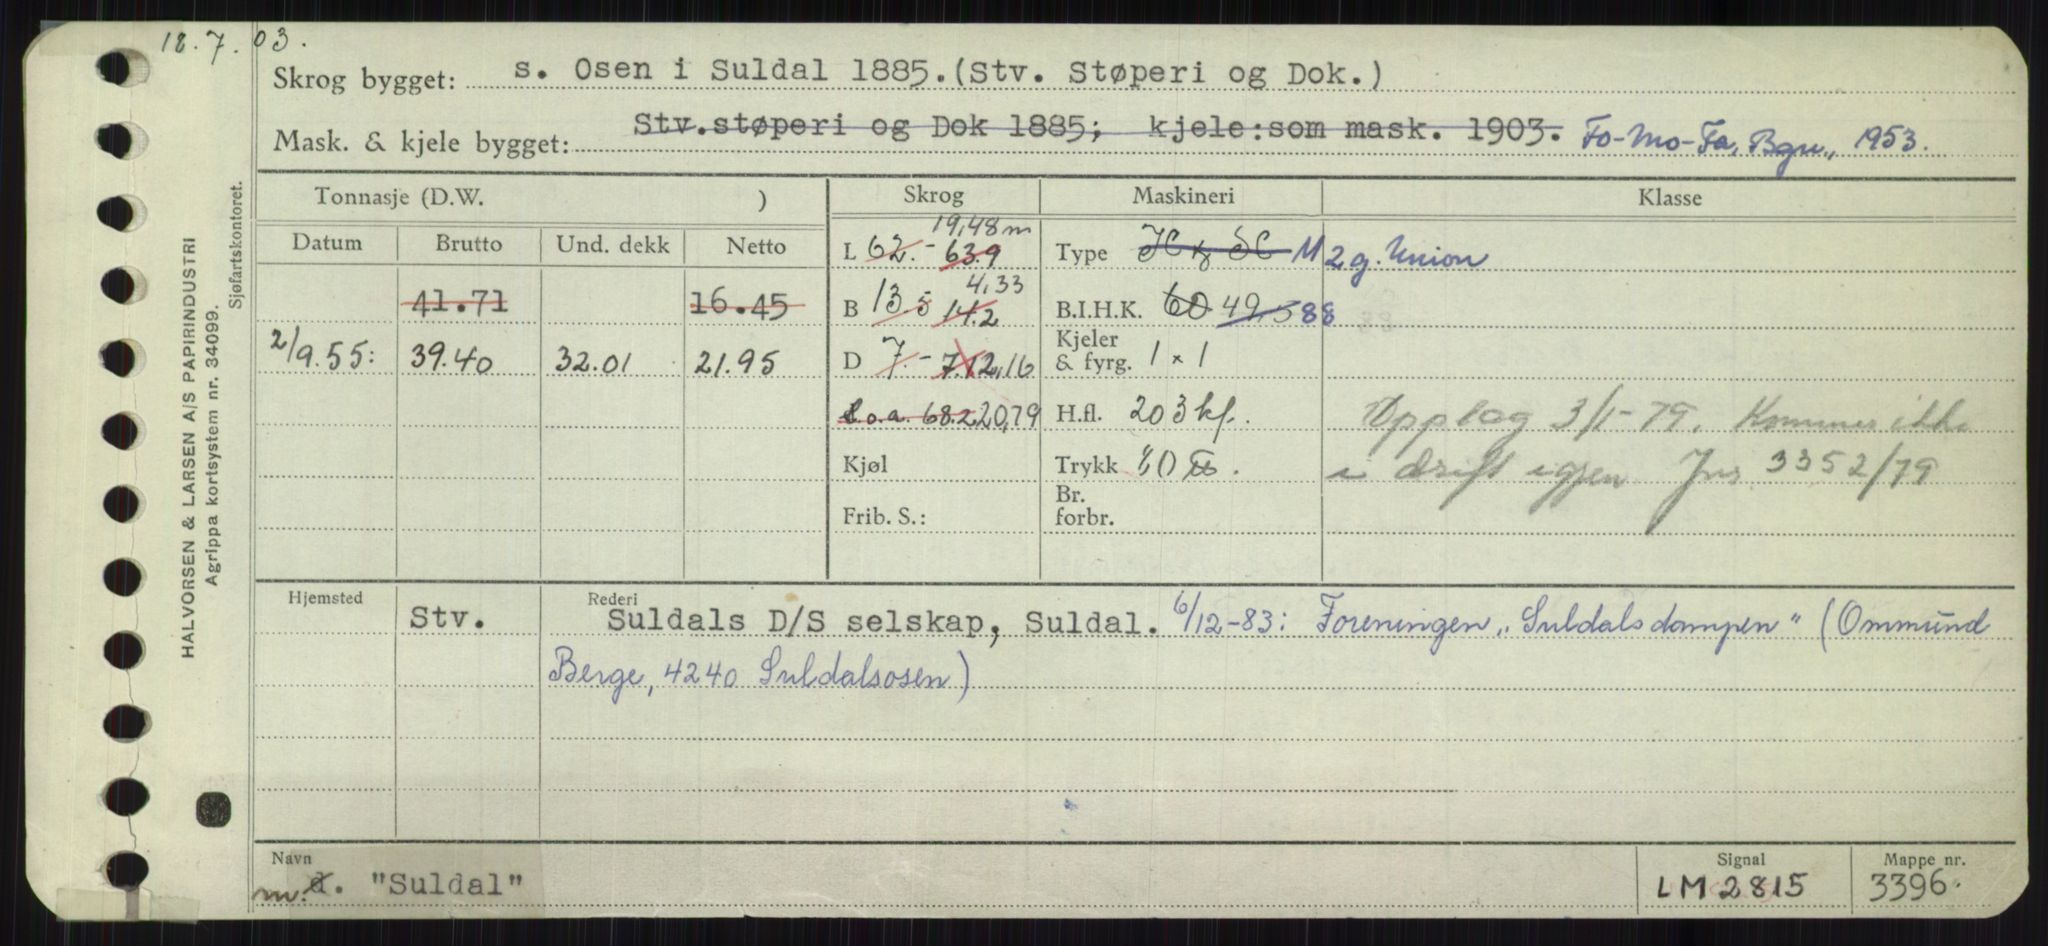 18.7.03.
Skrog bygget: s. Osen i Suldal 1885.(Stv. Støperi og Dok.)
Mask. & kjele bygget: Stv.støperi og Dok 1885; kjele:som mask. 1903. Fo-Mo-Fa, Bgn., 1953.
HALVORSEN & LARSEN A/S PAPIRINDUSTRI
Agrippa kortsystem nr. 34099.
Sjøfartskontoret.
Tonnasje (D.W. ) Skrog Maskineri Klasse
Datum Brutto Und. dekk Netto
19,48 m
L 62.- 63.9 Type M 2 g. Union
41.71 16.45
4,33
B 13.5 14.2 B.I.H.K. 60 49,5 88
2/9.55: 39.40 32.01 21.95
D 7.- 7.1 2,16 Kjeler & fyrg. 1 x 1
L.o.a. 68.2 20,79 H.fl. 203 kf. Opplag 3/1-79. Kommer ikke
Kjøl Trykk 80 i drift igjen Jnr 3352/79
Frib. S.: Br. forbr.
Hjemsted Rederi
Stv. Suldals D/S selskap, Suldal. 6/12-83: Foreningen „Suldalsdampen" (Ommund
Berge, 4240 Suldalsosen)
Navn Signal Mappe nr.
m. d. "Suldal" LM2815 3396.